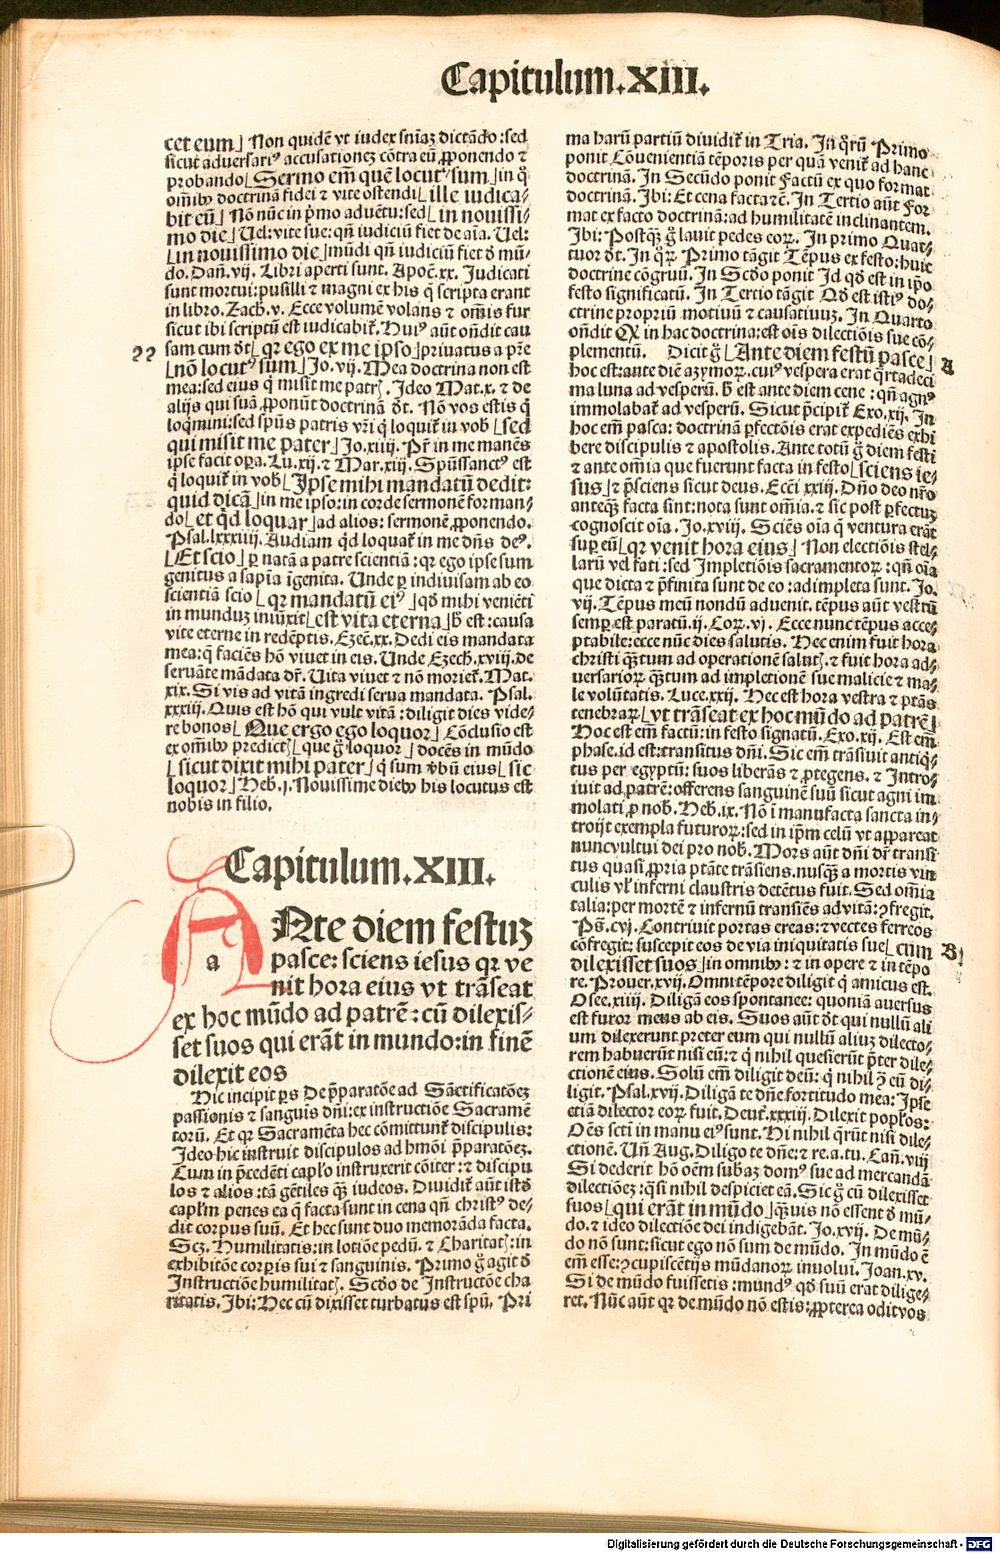 Capitulum.XIII.
cet eum⌋ Non quidē vt iudex sn̄iaꝫ dictādo:sed
sicut adversariꝰ accusationeꝫ cōtra eū ꝓponendo ⁊
probando⌊Sermo em̄ quē locutꝰ sum⌋in q̊
om̄ibꝰ doctrinā fidei ⁊ vite ostendi⌊ille iudica-
bit eū⌋Nō nūc in pͥmo aduētu:sed⌊in nouissi-
mo die⌋Uel:vite sue:qn̄ iudiciū fiet de aīa. Uel:
⌊in nouissimo die⌋mūdi qn̄ iudiciū fiet ð mū-
do. Dan̄.vij. Libri aperti sunt. Apoē.xx. Judicati
sunt mortui:pusilli ⁊ magni ex his q̄ scripta erant
in libro. Zach.v. Ecce volumē volans ⁊ om̄is fur
sicut ibi scriptū est iudicabit̄. Huiꝰ aūt on̄dit cau
sam cum ðt⌊qꝛ ego ex me ipso⌋priuatus a pr̄e
⌊nō locutꝰ sum⌋Jo.vij. Mea doctrina non est
mea:sed eius q̄ misit me patrꝭ. Ideo Mat.x. ⁊ de
alijs qui suā ꝓponūt doctrinā ðt. Nō vos estis q̄
loqͥmini:sed spūs patris vr̄i q̄ loquit̄ in vob̄⌊sed
qui misit me pater⌋Jo.xiiii. Pr̄ in me manēs
ipse facit oꝑa. Lu.xij. ⁊ Mar.xiij. Spūssanctꝰ est
q̄ loquit̄ in vob̄⌊Ipse mihi mandatū dedit:
quid dicā⌋in me ipso:in corde sermonē forman-
do⌊et qͥd loquar⌋ad alios:sermonē ꝓponendo.
Psal.lxxxiiij. Audiam qͥd loquat̄ in me dn̄s deꝰ.
⌊Et scio⌋ꝑ natā a patre scientiā:qꝛ ego ipse sum
genitus a sapīa īgenita. Unde ꝑ indiuisam ab eo
scientiā scio⌊qꝛ mandatū eiꝰ⌋qð mihi veniēti
in munduꝫ iniūxit⌊est vita eterna⌋h̄ est:causa
vite eterne in redēptis. Ezec̄.xx. Dedi eis mandata
mea:q̄ faciēs hō viuet in eis. Unde Ezech.xviij.de
seruāte mādata dr̄. Uita viuet ⁊ nō moriet̄. Mat.
xix. Si vis ad vitā ingredi serua mandata. Psal.
xxxiij. Quis est hō qui vult vitā:diligit dies vide-
re bonos⌊Que ergo ego loquor⌋Cōclusio est
ex om̄ibꝰ predictꝭ⌊que g̊ loquor⌋docēs in mūdo
⌊sicut dixit mihi pater⌋q̄ sum v̄bū eius⌊sic
loquor⌋Heb.j. Nouissime diebꝰ his locutus est
nobis in filio.
Capitulum.XIII.
a
ANte diem festuꝫ
pasce:sciens iesus qꝛ ve
nit hora eius vt trāseat
ex hoc mūdo ad patrē:cū dilexis-
set suos qui erāt in mundo:in finē
dilexit eos
Hic incipit ꝑs De p̄paratōe ad Sāctificatōeꝫ
passionis ⁊ sanguis dn̄i:ex instructiōe Sacramē
torū. Et qꝛ Sacramēta hec cōmittunt̄ discipulis:
Ideo hic instruit discipulos ad hm̄oi p̄paratōeꝫ.
Cum in p̄cedēti capl̄o instruxerit cōiter:⁊ discipu
los ⁊ alios:tā gētiles qꝫ iudeos. Diuidit̄ aūt istð
capl̄m penes ea q̄ facta sunt in cena qn̄ christꝰ de-
dit corpus suū. Et hec sunt duo memorāda facta.
Scꝫ. Humilitatis:in lotiōe pedū. ⁊ Charitatꝭ:in
exhibitōe corpͥis sui ⁊ sanguinis. Primo g̊ agit ð
Instructiōe humilitatꝭ. Scðo de Instructōe cha
ritatis. Ibi:Hec cū dixisset turbatus est spū. Pri
ma harū partiū diuidit̄ in Tria. In qͦrū Primo
ponit Cōuenientiā tēporis per quā venit̄ ad hanc
doctrinā. In Secūdo ponit Factū ex quo format
doctrinā. Ibi:Et cena facta ꝛē. In Tertio aūt for
mat ex facto doctrinā:ad humilitatē inclinantem.
Ibi:Postqꝫ g̊ lauit pedes eoꝝ. In primo Quat-
tuor ðt. In qͦꝝ Primo tāgit Tēpus ex festo:huic
doctrine cōgruū. In Scðo ponit Id qð est in ip̄o
festo significatū. In Tertio tāgit Qð est istiꝰ do-
ctrine propriū motiuū ⁊ causatiuuꝫ. In Quarto
on̄dit Qꝛ in hac doctrina:est oīs dilectiōis sue cō-
plementū. Dicit g̊⌊Ante diem festū pasce⌋
hoc est:ante diē azymoꝝ.cuiꝰ vespera erat qͣrtadeci
ma luna ad vesperū. h̄ est ante diem cene:qn̄ agnꝰ
immolabat̄ ad vesperū. Sicut p̄cipit̄ Exo.xij. In
hoc em̄ pasca:doctrinā ꝑfectōis erat expediēs exhi
bere discipulis ⁊ apostolis. Ante totū g̊ diem festi
⁊ ante om̄ia que fuerunt facta in festo⌊sciens ie-
sus⌋⁊ p̄sciens sicut deus. Ecc̄i xxiij. Dn̄o deo nr̄o
anteqꝫ facta sint:nota sunt om̄ia.⁊ sic post ꝑfectuꝫ
cognoscit oīa. Jo.xviij. Sciēs oīa q̄ ventura erāt
suꝑ eū⌊qꝛ venit hora eius⌋Non electiōis stel-
larū vel fati:sed Impletiōis sacramentoꝝ:qn̄ oīa
que dicta ⁊ p̄finita sunt de eo:adimpleta sunt. Jo.
vij. Tēpus meū nondū aduenit. tēpus aūt vestrū
semꝑ est paratū.ij. Coꝝ.vj. Ecce nunc tēpus acce-
ptabile:ecce nūc dies salutis. Hec enim fuit hora
christi qꝫtum ad operationē salutꝭ.⁊ fuit hora ad-
versarioꝝ qꝫtum ad impletionē sue malicie ⁊ ma-
le volūtatis. Luce.xxij. Hec est hora vestra ⁊ ptās
tenebraꝝ⌊vt trāseat ex hoc mūdo ad patrē⌋
Hoc est em̄ factū:in festo signatū. Exo.xij. Est em̄
phase.id est:transitus dn̄i. Sic em̄ trāsiuit antiqͥ-
tus per egyptū:suos liberās ⁊ ꝓtegens.⁊ Intro-
iuit ad patrē:offerens sanguinē suū sicut agni im
molati ꝓ nob̄. Heb.ix. Nō ī manufacta sancta in-
troijt exempla futuroꝝ:sed in ip̄m celū vt appareat
nunc vultui dei pro nob̄. Mors aūt dn̄i dr̄ transi
tus quasi ꝓpria ptāte trāsiens.nusqꝫ a mortis vin
culis vl̓ inferni claustris detētus fuit. Sed om̄ia
talia:per mortē ⁊ infernū transiēs ad vitā:ꝯfregit.
Ps̄.cvj. Contriuit portas ereas:⁊ vectes ferreos
cōfregit:suscepit eos de via iniquitatis sue⌊cum
dilexisset suos⌋in omnibꝰ:⁊ in opere ⁊ in tēpo
re. Prouer.xvij. Omni tēpore diligit q̄ amicus est.
Osee.xiiij. Diligā eos spontanee:quoniā auersus
est furor meus ab eis. Suos aūt ðt qui nullū ali
um dilexerunt preter eum qui nullū aliuꝫ dilecto-
rem habuerūt nisi eū:⁊ q̄ nihil quesierūt p̄ter dile-
ctionē eius. Solū em̄ diligit deū:q̄ nihil ꝯ̄ eū di-
ligit. Psal.xvij. Diligā te dn̄e fortitudo mea:Ipse
etiā dilector eoꝝ fuit. Deut̄.xxxiij. Dilexit popl̄os:
Oēs sctī in manu eiꝰ sunt. Hi nihil qͣrūt nisi dile-
ctionē. Un̄ Aug. Diligo te dn̄e:⁊ re.a.tu. Can̄.viij
Si dederit hō oēm sub̄aꝫ domꝰ sue ad mercandā
dilectiōeꝫ:qͣsi nihil despiciet eā. Sic g̊ cū dilexisset
suos⌊qui erāt in mūdo⌋qͣuis nō essent ð mū-
do.⁊ ideo dilectiōe dei indigebāt. Jo.xvij. De mū-
do nō sunt:sicut ego nō sum de mūdo. In mūdo ē
em̄ esse:ꝯcupiscētijs mūdanoꝝ inuolui. Joan.xv.
Si de mūdo fuissetis:mundꝰ qð suū erat dilige-
ret. Nūc aūt qꝛ de mūdo nō estis:ꝓpterea odit vos
A
B
Digitalisierung gefördert durch die Deutsche Forschungsgemeinschaft - DFG